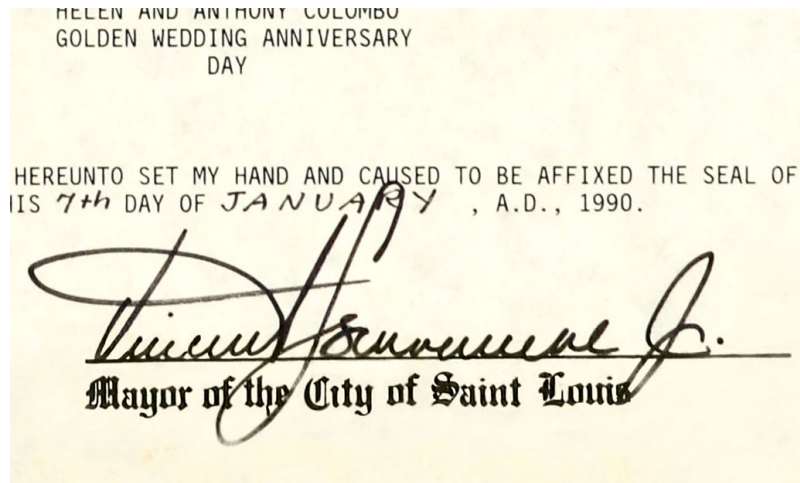 HELEN AND ANTHONY COLOMBO
GOLDEN WEDDING ANNIVERSARY
DAY
HEREUNTO SET MY HAND AND CAUSED TO BE AFFIXED THE SEAL OF
IS 7th DAY OF JANUARY , A.D., 1990.
Vincent Schoemehl Jr.
Mayor of the City of Saint Louis